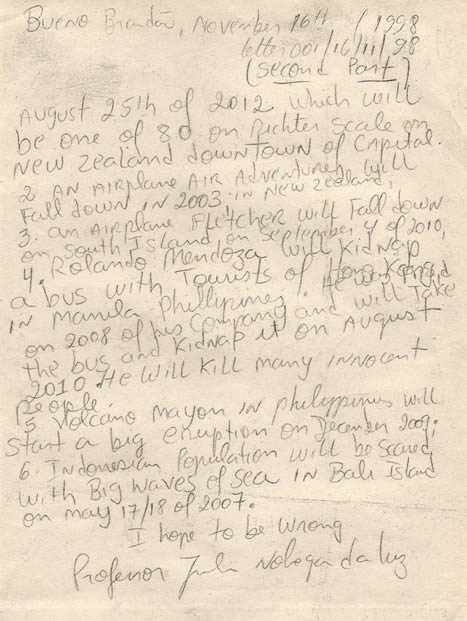 Bueno Brandão, November 16th / 1998
letter 001/16/11/98
(second Part)
August 25th of 2012 which will
be one of 80 on Richter scale on
New Zealand downtown of Capital.
2 AN AIRPLANE AIR Adventures will
Fall down in 2003 in New Zealand,
3. an AIRPLANE Fletcher will Fall down
on South Island, on September 4 of 2010,
4. Rolando Mendoza will Kidnap
a bus with Tourists of Hong Kong,
in Manila Phillipines. He was
on 2008 of his Company and will Take
the bus and Kidnap it on August
2010. He will Kill many innocent
People.
5. Volcano Mayon in philyppines will
start a big eruption on December 2009;
6. Indonesian Population will be scared
with Big waves of sea in Bali Island
on may 17/18 of 2007.
I hope to be wrong
Professor Nobrega da Luz